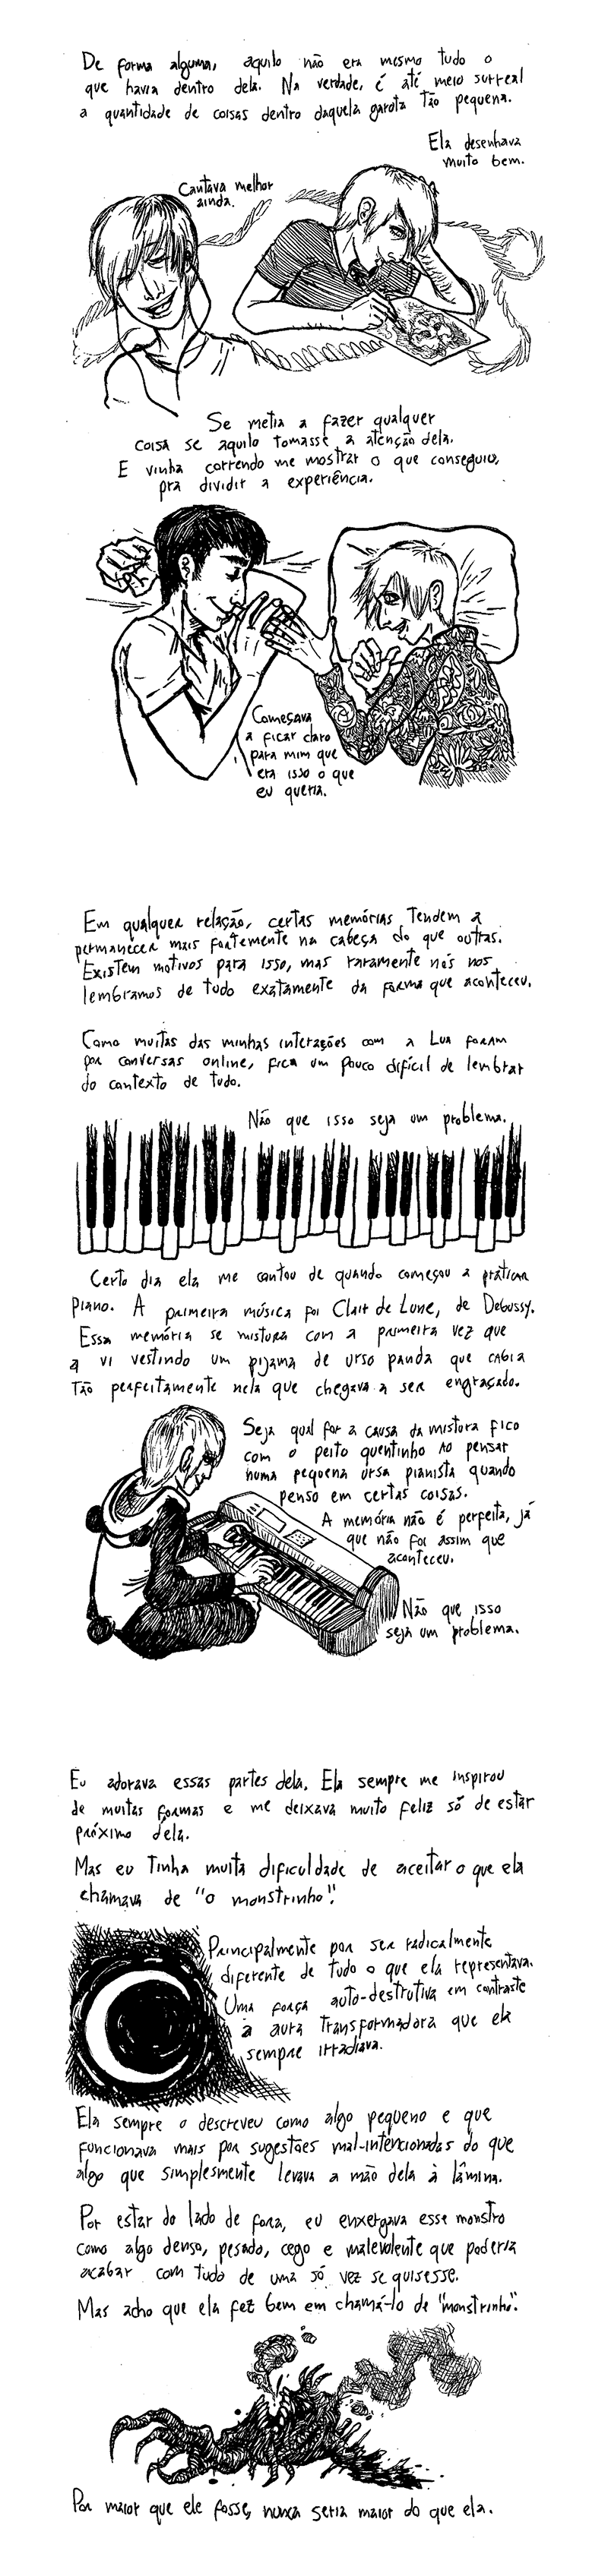 De forma alguma, aquilo não era mesmo tudo o
que havia dentro dela. Na verdade, é até meio surreal
a quantidade de coisas dentro daquela garota tão pequena.
Ela desenhava
muito bem.
Cantava melhor
ainda.
Se metia a fazer qualquer
coisa se aquilo tomasse a atenção dela.
E vinha correndo me mostrar o que conseguiu,
pra dividir a experiência.
Começava
a ficar claro
para mim que
era isso o que
eu queria.
Em qualquer relação, certas memórias tendem a
permanecer mais fortemente na cabeça do que outras.
Existem motivos para isso, mas raramente nós nos
lembramos de tudo exatamente da forma que aconteceu.
Como muitas das minhas interações com a Lua foram
por conversas online, fica um pouco difícil de lembrar
do contexto de tudo.
Não que isso seja um problema.
Certo dia ela me contou de quando começou a praticar
piano. A primeira música foi Clair de Lune, de Debussy.
Essa memória se mistura com a primeira vez que
a vi vestindo um pijama de urso panda que cabia
tão perfeitamente nela que chegava a ser engraçado.
Seja qual for a causa da mistura fico
com o peito quentinho ao pensar
numa pequena ursa pianista quando
penso em certas coisas.
A memória não é perfeita, já
que não foi assim que
aconteceu.
Não que isso
seja um problema.
Eu adorava essas partes dela. Ela sempre me inspirou
de muitas formas e me deixava muito feliz só de estar
próximo dela.
Mas eu tinha muita dificuldade de aceitar o que ela
chamava de "o monstrinho".
Principalmente por ser radicalmente
diferente de tudo o que ela representava.
Uma força auto-destrutiva em contraste
à aura transformadora que ela
sempre irradiava.
Ela sempre o descreveu como algo pequeno e que
funcionava mais por sugestões mal-intencionadas do que
algo que simplesmente levava a mão dela à lâmina.
Por estar do lado de fora, eu enxergava esse monstro
como algo denso, pesado, cego e malevolente que poderia
acabar com tudo de uma só vez se quisesse.
Mas acho que ela fez bem em chamá-lo de "monstrinho".
Por maior que ele fosse, nunca seria maior do que ela.